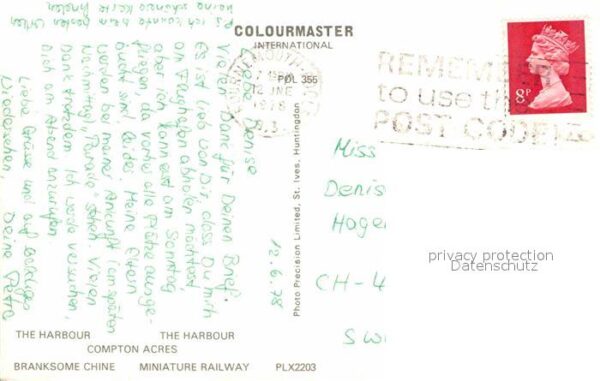 COLOURMASTER
INTERNATIONAL
PDL 355
12 JNE
1978
REMEMBER
to use the
POST CODE
8P
12.6.78
Liebe Denise
Vielen Dank für Deinen Brief.
Es ist lieb von Dir, dass Du mich
am Flughafen abholen möchtest,
aber ich kann erst am Sonntag
fliegen, da vorher alle Plätze ausge-
bucht sind, leider. Meine Eltern
werden bei meiner Ankunft (am späten
Nachmittag) "Parade" stehen. Vielen
Dank trotzdem. Ich werde versuchen,
Dich am Abend anzurufen.
Liebe Grüsse und auf baldiges
Wiedersehen, Deine Petra
Ps: ich konnte beim besten Willen
keine schönere Karte finden
Miss
Denis
Hoger
CH-4
SWI
Photo Precision Limited, St. Ives, Huntingdon
privacy protection
Datenschutz
THE HARBOUR THE HARBOUR
COMPTON ACRES
BRANKSOME CHINE MINIATURE RAILWAY PLX2203